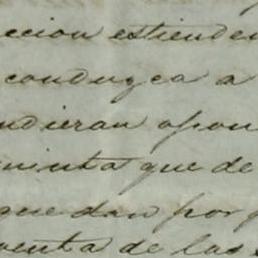 ccion estienden
conduzca a
ndieran opon
minta que de
quedan por
venta de las